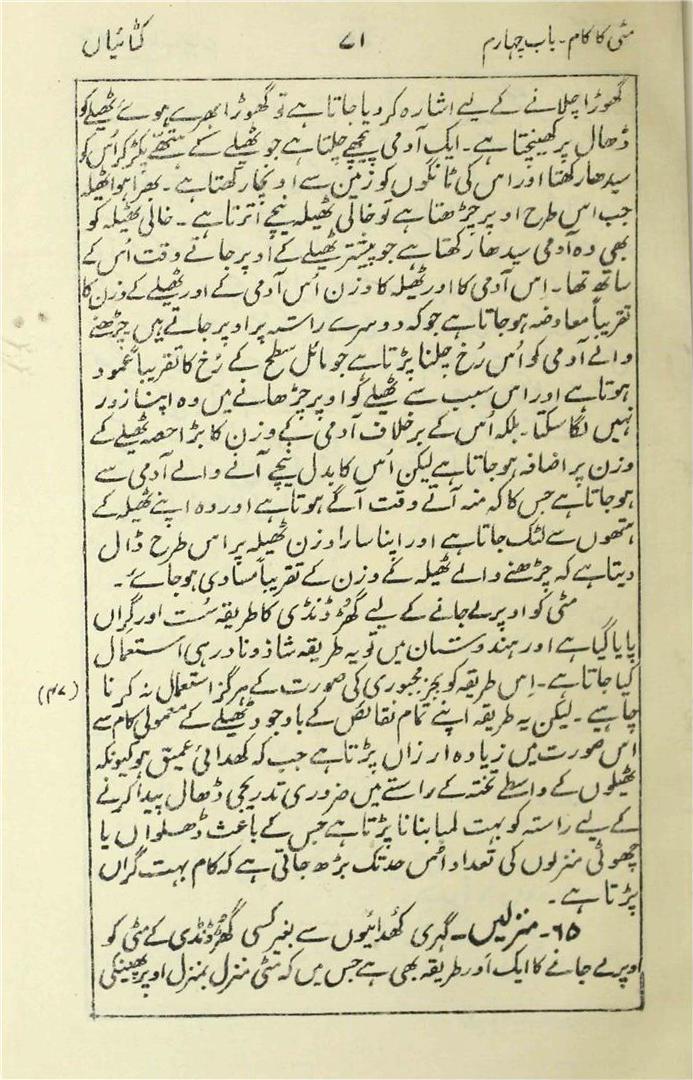 مٹی کا کام۔ باب چہارم ۷۱ کٹائیاں
گھوڑا چلانے کے لیے اشارہ کر دیا جاتا ہے تو گھوڑا بھرے ہوئے ٹھیلے کو
ڈھال پر کھینچتا ہے۔ ایک آدمی پیچھے چلتا ہے جو ٹھیلے کے ہتھے پکڑ کر اُس کو
سیدھا رکھتا اور اس کی ٹانگوں کو زمین سے اونچا رکھتا ہے۔ بھرا ہوا ٹھیلہ
جب اس طرح اوپر چڑھتا ہے تو خالی ٹھیلہ نیچے اُترتا ہے۔ خالی ٹھیلہ کو
بھی وہ آدمی سیدھا رکھتا ہے جو بیشتر ٹھیلے کے اوپر جاتے وقت اُس کے
ساتھ تھا۔ اِس آدمی کا اور ٹھیلہ کا وزن اُس آدمی کے اور ٹھیلے کے وزن کا
تقریباً معاوضہ ہو جاتا ہے جو کہ دوسرے راستہ پر اوپر جاتے ہیں چڑھنے
والے آدمی کو اُس رُخ چلنا پڑتا ہے جو مائل سطح کے رُخ کا تقریباً عمود
ہوتا ہے اور اس سبب سے ٹھیلے کو اوپر چڑھانے میں وہ اپنا زور
نہیں لگا سکتا۔ بلکہ اُس کے برخلاف آدمی کے وزن کا بڑا حصہ ٹھیلے کے
وزن پر اضافہ ہو جاتا ہے لیکن اُس کا بدل نیچے آنے والے آدمی سے
ہو جاتا ہے جس کا کہ منہ آتے وقت آگے ہوتا ہے اور وہ اپنے ٹھیلہ کے
ہتھوں سے لٹک جاتا ہے اور اپنا سارا وزن ٹھیلہ پر اس طرح ڈال
دیتا ہے کہ چڑھنے والے ٹھیلہ کے وزن کے تقریباً مساوی ہو جائے۔
مٹی کو اوپر لے جانے کے لیے گھُڑ ڈنڈی کا طریقہ سُست اور گراں
پایا گیا ہے اور ہندوستان میں تو یہ طریقہ شاذ و نادر ہی استعمال
کیا جاتا ہے۔ اِس طریقہ کو بجز مجبوری کی صورت کے ہرگز استعمال نہ کرنا (۴۷)
چاہیے۔ لیکن یہ طریقہ اپنے تمام نقائص کے باوجود ٹھیلے کے معمولی کام سے
اس صورت میں زیادہ ارزاں پڑتا ہے جب کہ کھدائی عمیق ہو کیونکہ
ٹھیلوں کے واسطے تختہ کے راستے میں ضروری تدریجی ڈھال پیدا کرنے
کے لیے راستہ کو بہت لمبا بنانا پڑتا ہے جس کے باعث ڈھلواں یا
چھوٹی منزلوں کی تعداد اُس حد تک بڑھ جاتی ہے کہ کام بہت گراں
پڑتا ہے۔
۶۵۔ منزلیں۔ گہری کھُدائیوں سے بغیر کسی گھُڑ ڈنڈی کے مٹی کو
اوپر لے جانے کا ایک اَور طریقہ بھی ہے جس میں کہ مٹی منزل بمنزل اوپر پھینکی